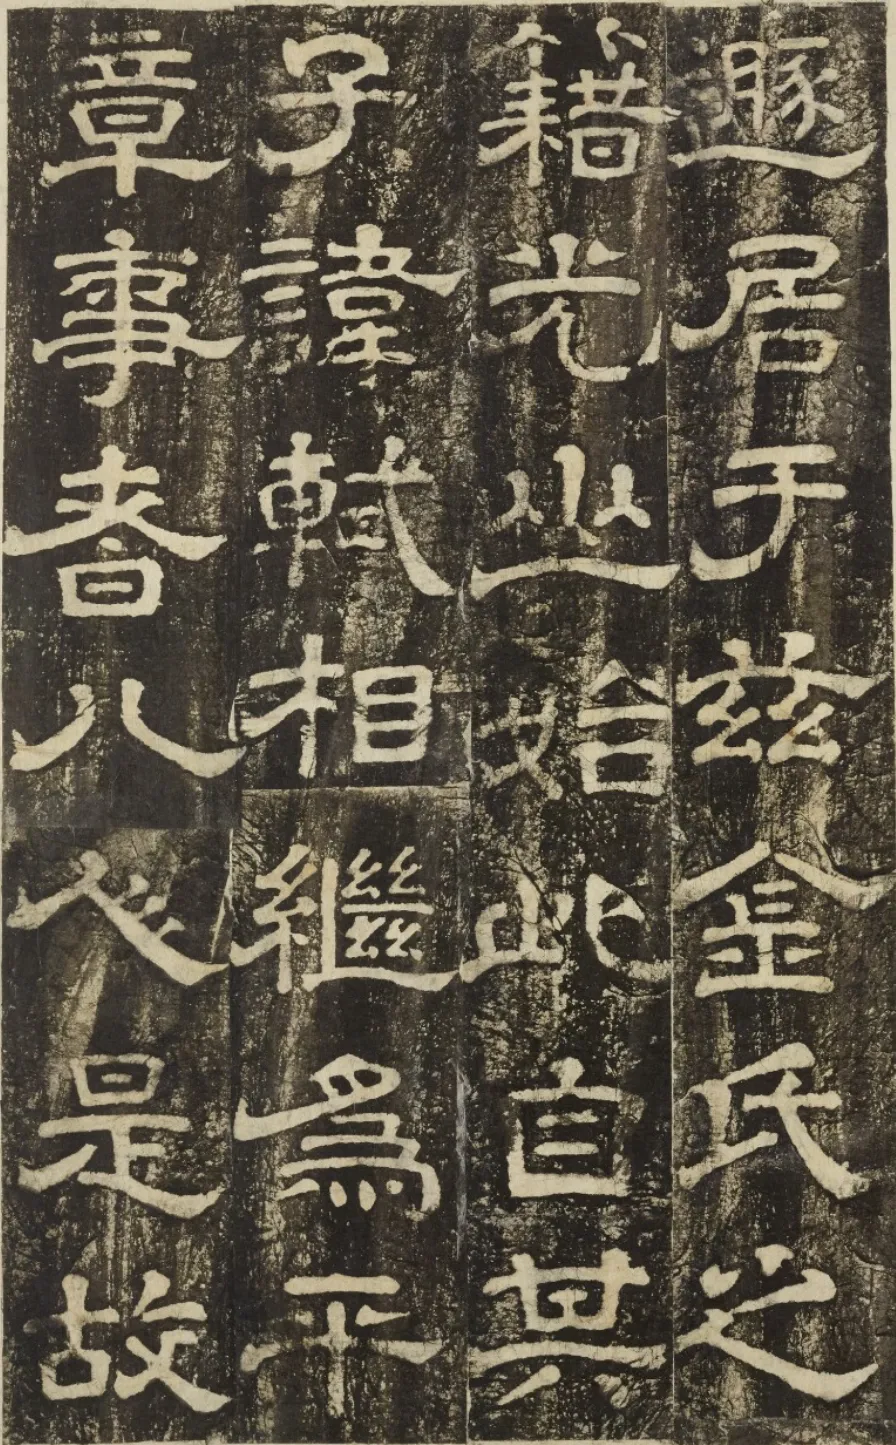 遯居于兹金氏之
籍光山始此自其
子諱軾相繼爲平
章事者八人是故